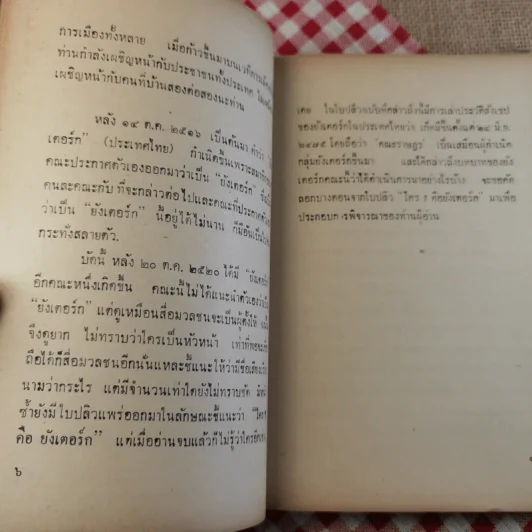 การเมืองทั้งหลาย เมื่อก้าวขึ้นมาบนเวที
ท่านกำลังเผชิญหน้ากับประชาชนทั้งประเทศ
เผชิญหน้ากับคนที่บ้านสองต่อสองนะท่าน
หลัง ๑๔ ต.ค. ๒๕๑๖ เป็นต้นมา คำว่า
เตอร์ก” (ประเทศไทย) กำเนิดขึ้นเพราะ
คณะประกาศตัวเองออกมาว่าเป็น “ยังเตอร์ก”
คนละคณะกับที่จะกล่าวต่อไปและคณะที่ประกาศ
ว่าเป็น “ยังเตอร์ก” นี้อยู่ได้ไม่นาน ก็มีอันเป็น
กระทั่งสลายตัว.
บัดนี้ หลัง ๒๐ ต.ค. ๒๕๒๐ ได้มี “ยังเตอร์ก”
อีกคณะหนึ่งเกิดขึ้น คณะนี้ไม่ได้แนะนำตัวเองว่า
“ยังเตอร์ก” แต่ดูเหมือนสื่อมวลชนจะเป็นผู้ตั้งให้
จึงดูยาก ไม่ทราบว่าใครเป็นหัวหน้า เท่าที่พอจะ
ถือได้ก็สื่อมวลชนอีกนั่นแหละชี้แนะให้ว่ามีชื่อเรียง
นามว่ากระไร แต่มีจำนวนเท่าใดยังไม่ทราบชัด
ซ้ำยังมีใบปลิวแพร่ออกมาในลักษณะชี้แนะว่า “ใคร ?
คือ ยังเตอร์ก” แต่เมื่ออ่านจบแล้วก็ไม่รู้ว่าใครอีก
๖
เคย ในใบปลิวฉบับที่กล่าวถึงนี้มีการเล่าประวัติสังเขป
ของยังเตอร์กในประเทศไทยว่า เกิดมีขึ้นตั้งแต่ ๒๔ มิ.ย.
๒๔๗๕ โดยถือว่า “คณะราษฎร” เป็นเสมือนผู้กำเนิด
กลุ่มยังเตอร์กขึ้นมา และได้กล่าวถึงบทบาทของยัง
เตอร์กคณะนี้ว่าได้ดำเนินการมาอย่างไรบ้าง จะขอคัด
ลอกบางตอนจากใบปลิว “ใคร ? คือยังเตอร์ก” มาเพื่อ
ประกอบการพิจารณาของท่านผู้อ่าน